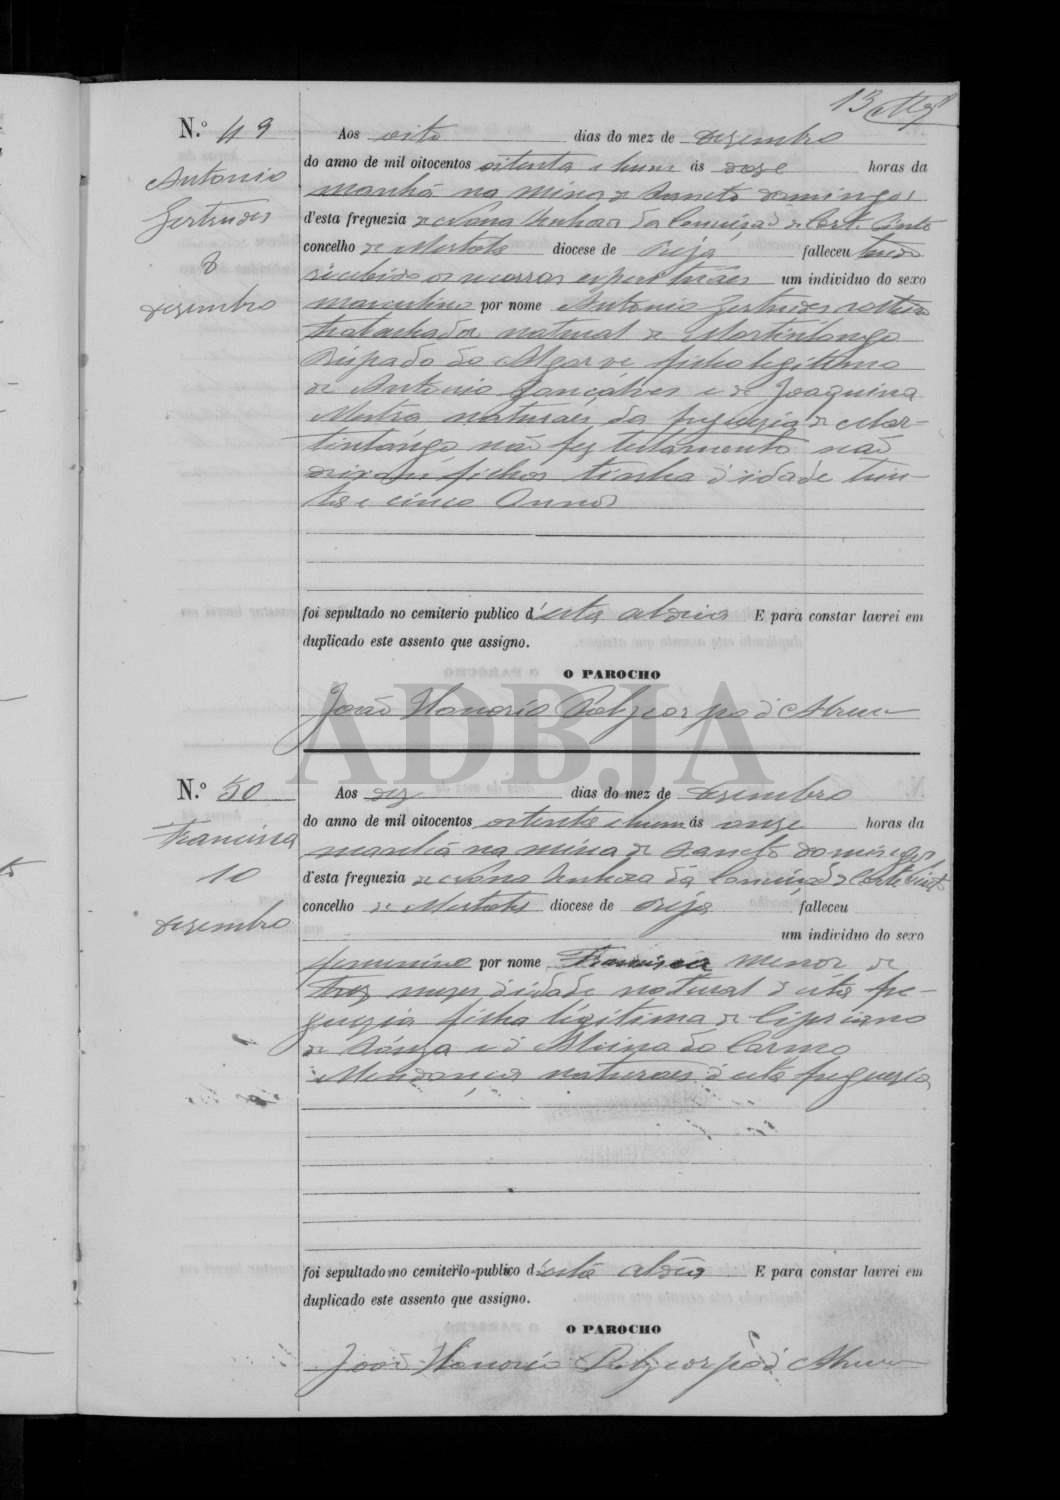 13
N.º 49
Antonio
Gertrudes
8
Dezembro
Aos oito dias do mez de Dezembro
do anno de mil oitocentos oitenta e hum ás doze horas da
manhã na mina de Sancto Domingos
d'esta freguezia de Nossa Senhora da Conceição de Corte Pinto
concelho de Mertola diocese de Beja falleceu tendo
recebido os um individuo do sexo
masculino por nome Antonio Gertrudes
trabalhador natural de Martinlongo
Bispado do Algarve filho legitimo
de Antonio Gonçalves e de Joaquina
Mestra naturaes da freguezia de Mar-
tinlongo não fez testamento não
deixou filhos tinha d'idade trin-
ta e cinco Annos
foi sepultado no cemiterio publico d'esta aldeia E para constar lavrei em
duplicado este assento que assigno.
O PAROCHO
João Honorio Policarpo d'Abreu
ADBJA
N.º 50
Francisca
10
Dezembro
Aos dez dias do mez de Dezembro
do anno de mil oitocentos oitenta e hum ás onze horas da
manhã na mina de Sancto Domingos,
d'esta freguezia de Nossa Senhora da Conceição de Corte Pinto
concelho de Mertola diocese de Beja falleceu
um individuo do sexo
femenino por nome Francisca menor de
tres mezes d'idade natural d'esta fre-
guezia filha legitima de Cipriano
de Souza e d' do Carmo
naturaes d'esta freguezia
foi sepultado no cemiterio publico d'esta aldeia E para constar lavrei em
duplicado este assento que assigno.
O PAROCHO
João Honorio Policarpo d'Abreu